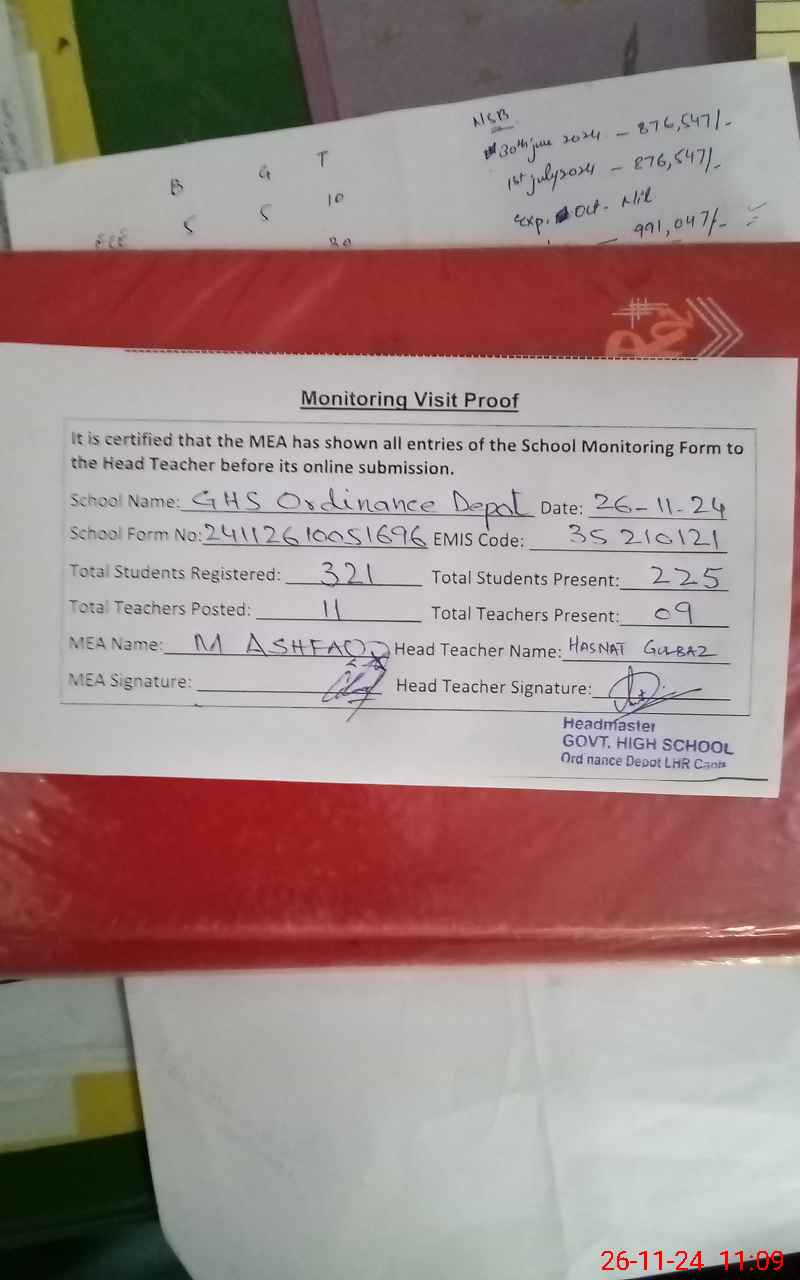 NSB
30th june 2024 – 876,547/-
1st july 2024 – 876,547/-
exp. Oct - Nil
– 991,047/-
B G T
ECE 5 5 10
30
Monitoring Visit Proof
It is certified that the MEA has shown all entries of the School Monitoring Form to
the Head Teacher before its online submission.
School Name: GHS Ordinance Depot Date: 26-11-24
School Form No: 24112610051696 EMIS Code: 35210121
Total Students Registered: 321 Total Students Present: 225
Total Teachers Posted: 11 Total Teachers Present: 09
MEA Name: M ASHFAQ Head Teacher Name: HASNAT GULBAZ
MEA Signature: Head Teacher Signature:
Headmaster
GOVT. HIGH SCHOOL
Ordnance Depot LHR Cantt
26-11-24 11:09